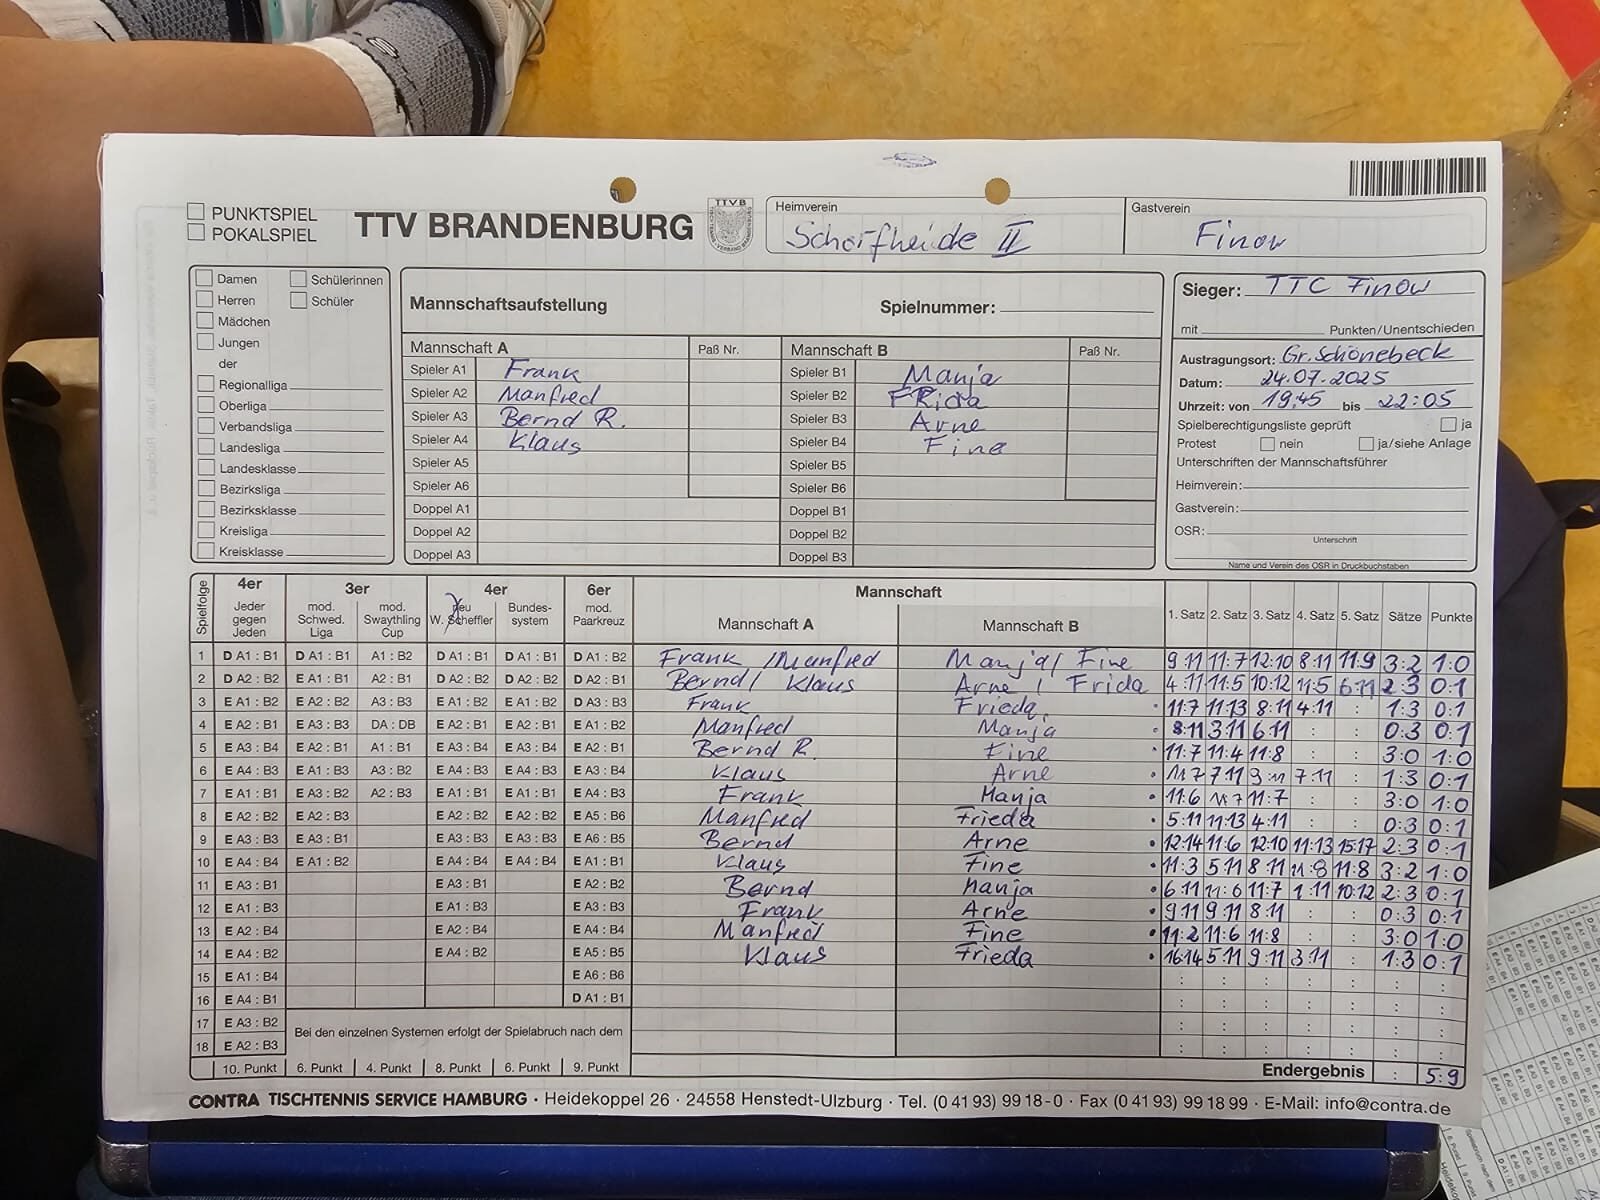 PUNKTSPIEL
POKALSPIEL
TTV BRANDENBURG
TTVB
Heimverein
Schorfheide II
Gastverein
Finow
Damen Schülerinnen
Herren Schüler
Mädchen
Jungen
der
Regionalliga
Oberliga
Verbandsliga
Landesliga
Landesklasse
Bezirksliga
Bezirksklasse
Kreisliga
Kreisklasse
Mannschaftsaufstellung Spielnummer:
Mannschaft A Paß Nr. Mannschaft B Paß Nr.
Spieler A1 Frank Spieler B1 Manja
Spieler A2 Manfred Spieler B2 FRida
Spieler A3 Bernd R. Spieler B3 Arne
Spieler A4 Klaus Spieler B4 Fine
Spieler A5 Spieler B5
Spieler A6 Spieler B6
Doppel A1 Doppel B1
Doppel A2 Doppel B2
Doppel A3 Doppel B3
Sieger: TTC Finow
mit Punkten/Unentschieden
Austragungsort: Gr. Schönebeck
Datum: 24.07.2025
Uhrzeit: von 19:45 bis 22:05
Spielberechtigungsliste geprüft ja
Protest nein ja/siehe Anlage
Unterschriften der Mannschaftsführer
Heimverein:
Gastverein:
OSR:
Unterschrift
Name und Verein des OSR in Druckbuchstaben
Spielfolge 4er 3er 4er 6er Mannschaft
Jeder gegen Jeden mod. Schwed. Liga mod. Swaythling Cup neu W. Scheffler Bundes-system mod. Paarkreuz Mannschaft A Mannschaft B 1. Satz 2. Satz 3. Satz 4. Satz 5. Satz Sätze Punkte
1 D A1 : B1 D A1 : B1 A1 : B2 D A1 : B1 D A1 : B1 D A1 : B2 Frank / Manfred Manja / Fine 9:11 11:7 12:10 8:11 11:9 3:2 1:0
2 D A2 : B2 E A1 : B1 A2 : B1 D A2 : B2 D A2 : B2 D A2 : B1 Bernd / Klaus Arne / Frida 4:11 11:5 10:12 11:5 6:11 2:3 0:1
3 E A1 : B2 E A2 : B2 A3 : B3 E A1 : B2 E A1 : B2 D A3 : B3 Frank Frieda 11:7 11:13 8:11 4:11 : 1:3 0:1
4 E A2 : B1 E A3 : B3 DA : DB E A2 : B1 E A2 : B1 E A1 : B2 Manfred Manja 8:11 3:11 6:11 : : 0:3 0:1
5 E A3 : B4 E A2 : B1 A1 : B1 E A3 : B4 E A3 : B4 E A2 : B1 Bernd R. Fine 11:7 11:4 11:8 3:0 1:0
6 E A4 : B3 E A1 : B3 A3 : B2 E A4 : B3 E A4 : B3 E A3 : B4 Klaus Arne 11:7 7:11 9:11 7:11 : 1:3 0:1
7 E A1 : B1 E A3 : B2 A2 : B3 E A1 : B1 E A1 : B1 E A4 : B3 Frank Manja 11:6 11:7 11:7 : : 3:0 1:0
8 E A2 : B2 E A2 : B3 E A2 : B2 E A2 : B2 E A5 : B6 Manfred Frieda 5:11 11:13 4:11 0:3 0:1
9 E A3 : B3 E A3 : B1 E A3 : B3 E A3 : B3 E A6 : B5 Bernd Arne 12:14 11:6 12:10 11:13 15:17 2:3 0:1
10 E A4 : B4 E A1 : B2 E A4 : B4 E A4 : B4 E A1 : B1 Klaus Fine 11:3 5:11 8:11 11:8 11:8 3:2 1:0
11 E A3 : B1 E A3 : B1 E A2 : B2 Bernd Manja 6:11 11:6 11:7 1:11 10:12 2:3 0:1
12 E A1 : B3 E A1 : B3 E A3 : B3 Frank Arne 9:11 9:11 8:11 : : 0:3 0:1
13 E A2 : B4 E A2 : B4 E A4 : B4 Manfred Fine 11:2 11:6 11:8 : : 3:0 1:0
14 E A4 : B2 E A4 : B2 E A5 : B5 Klaus Frieda 16:14 5:11 9:11 3:11 : 1:3 0:1
15 E A1 : B4 E A6 : B6
16 E A4 : B1 D A1 : B1
17 E A3 : B2 Bei den einzelnen Systemen erfolgt der Spielabruch nach dem
18 E A2 : B3
10. Punkt 6. Punkt 4. Punkt 8. Punkt 6. Punkt 9. Punkt Endergebnis : 5:9
CONTRA TISCHTENNIS SERVICE HAMBURG · Heidekoppel 26 · 24558 Henstedt-Ulzburg · Tel. (0 41 93) 99 18-0 · Fax (0 41 93) 99 18 99 · E-Mail: info@contra.de